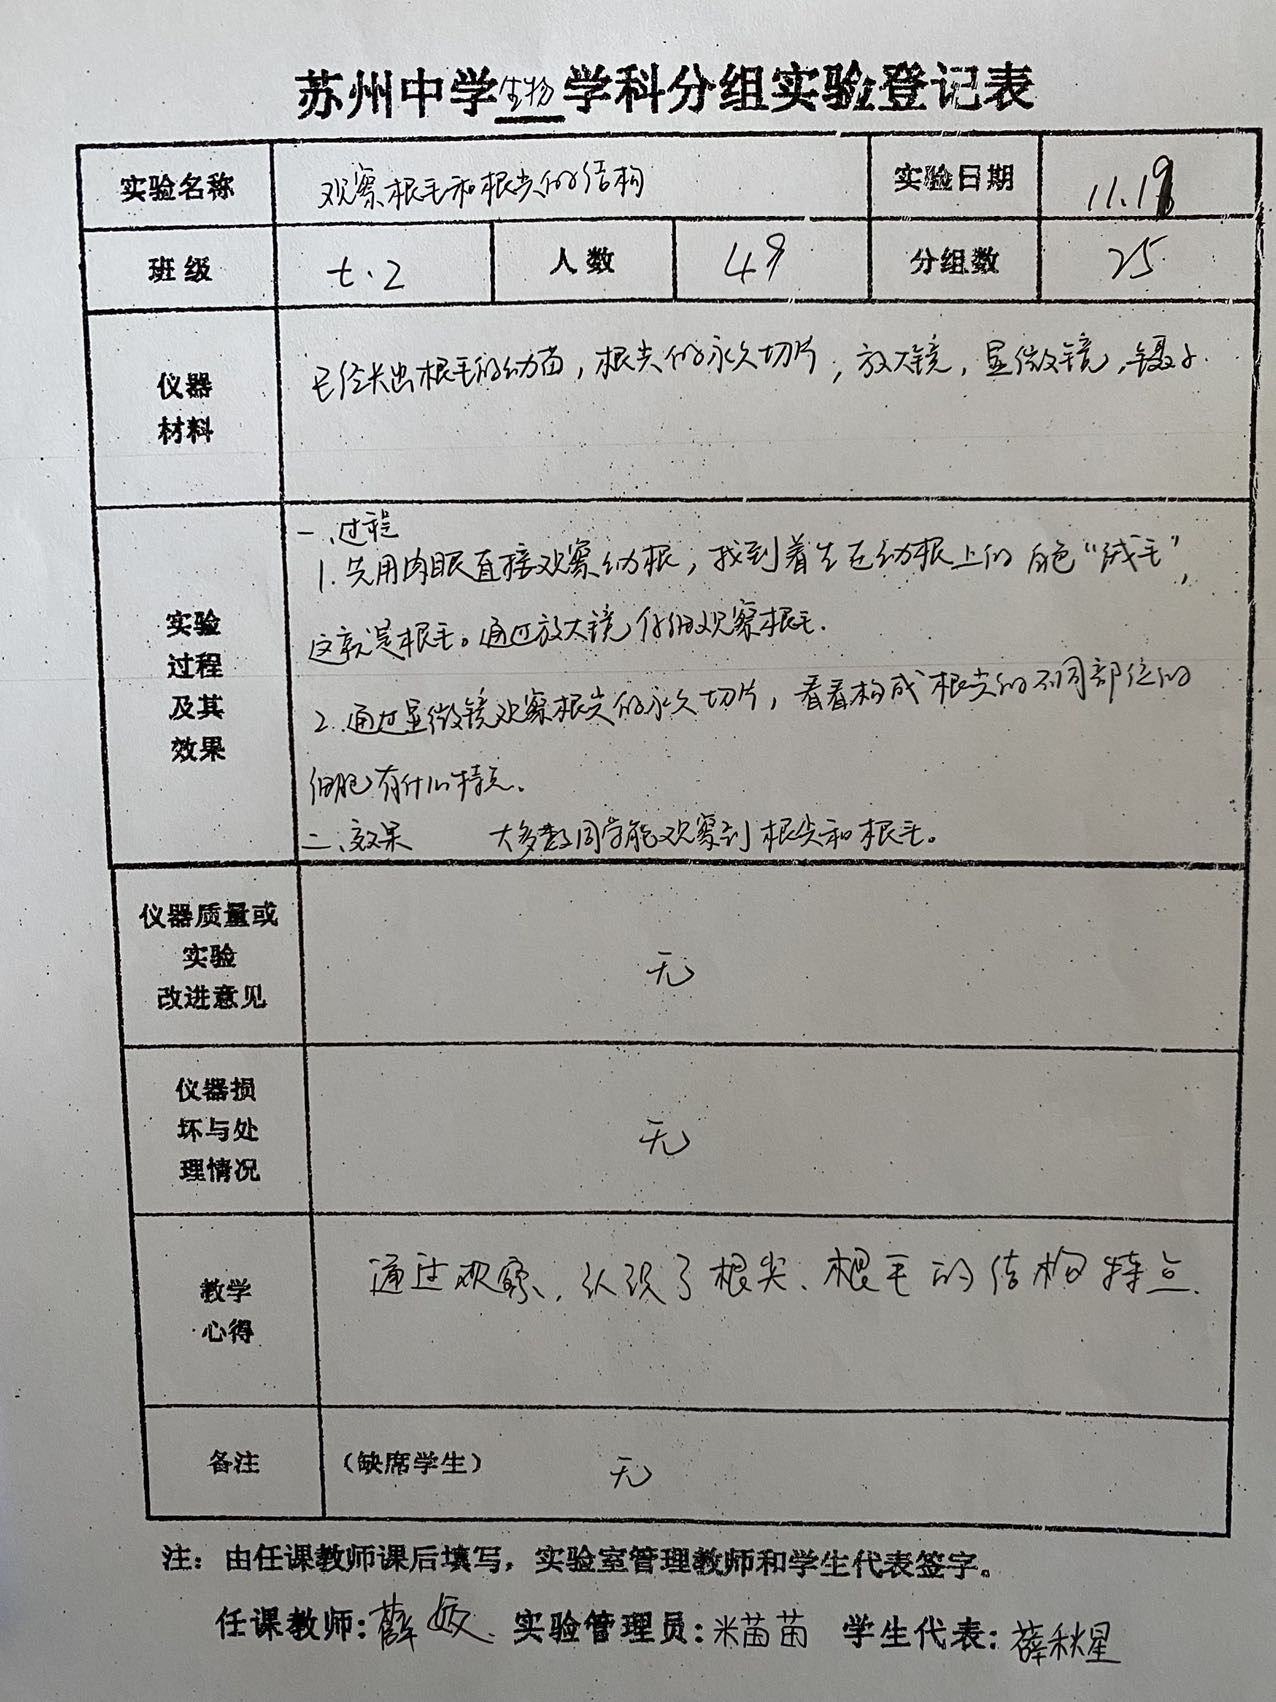 苏州中学生物学科分组实验登记表
实验名称 观察根毛和根尖的结构 实验日期 11.19
班级 七.2 人数 49 分组数 25
仪器
材料
已经长出根毛的幼苗,根尖的永久切片,放大镜,显微镜,镊子.
实验
过程
及其
效果
一、过程
1.先用肉眼直接观察幼根,找到着生在幼根上的白色“绒毛”,
这就是根毛。通过放大镜仔细观察根毛.
2.通过显微镜观察根尖的永久切片,看看构成根尖的不同部位的
细胞有什么特点.
二、效果 大多数同学能观察到根尖和根毛。
仪器质量或
实验
改进意见
无
仪器损
坏与处
理情况
无
教学
心得
通过观察,认识了根尖、根毛的结构特点.
备注 (缺席学生) 无
注:由任课教师课后填写,实验室管理教师和学生代表签字。
任课教师:薛姣 实验管理员:米苗苗 学生代表:薛秋星